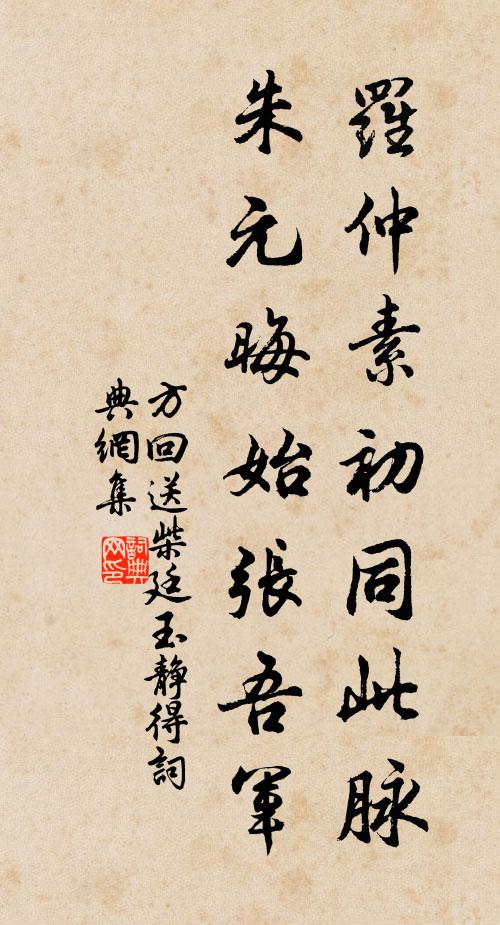 羅仲素初同此脉
朱元晦始張吾軍
方回送柴廷玉静得詞
典網集
詞典网印